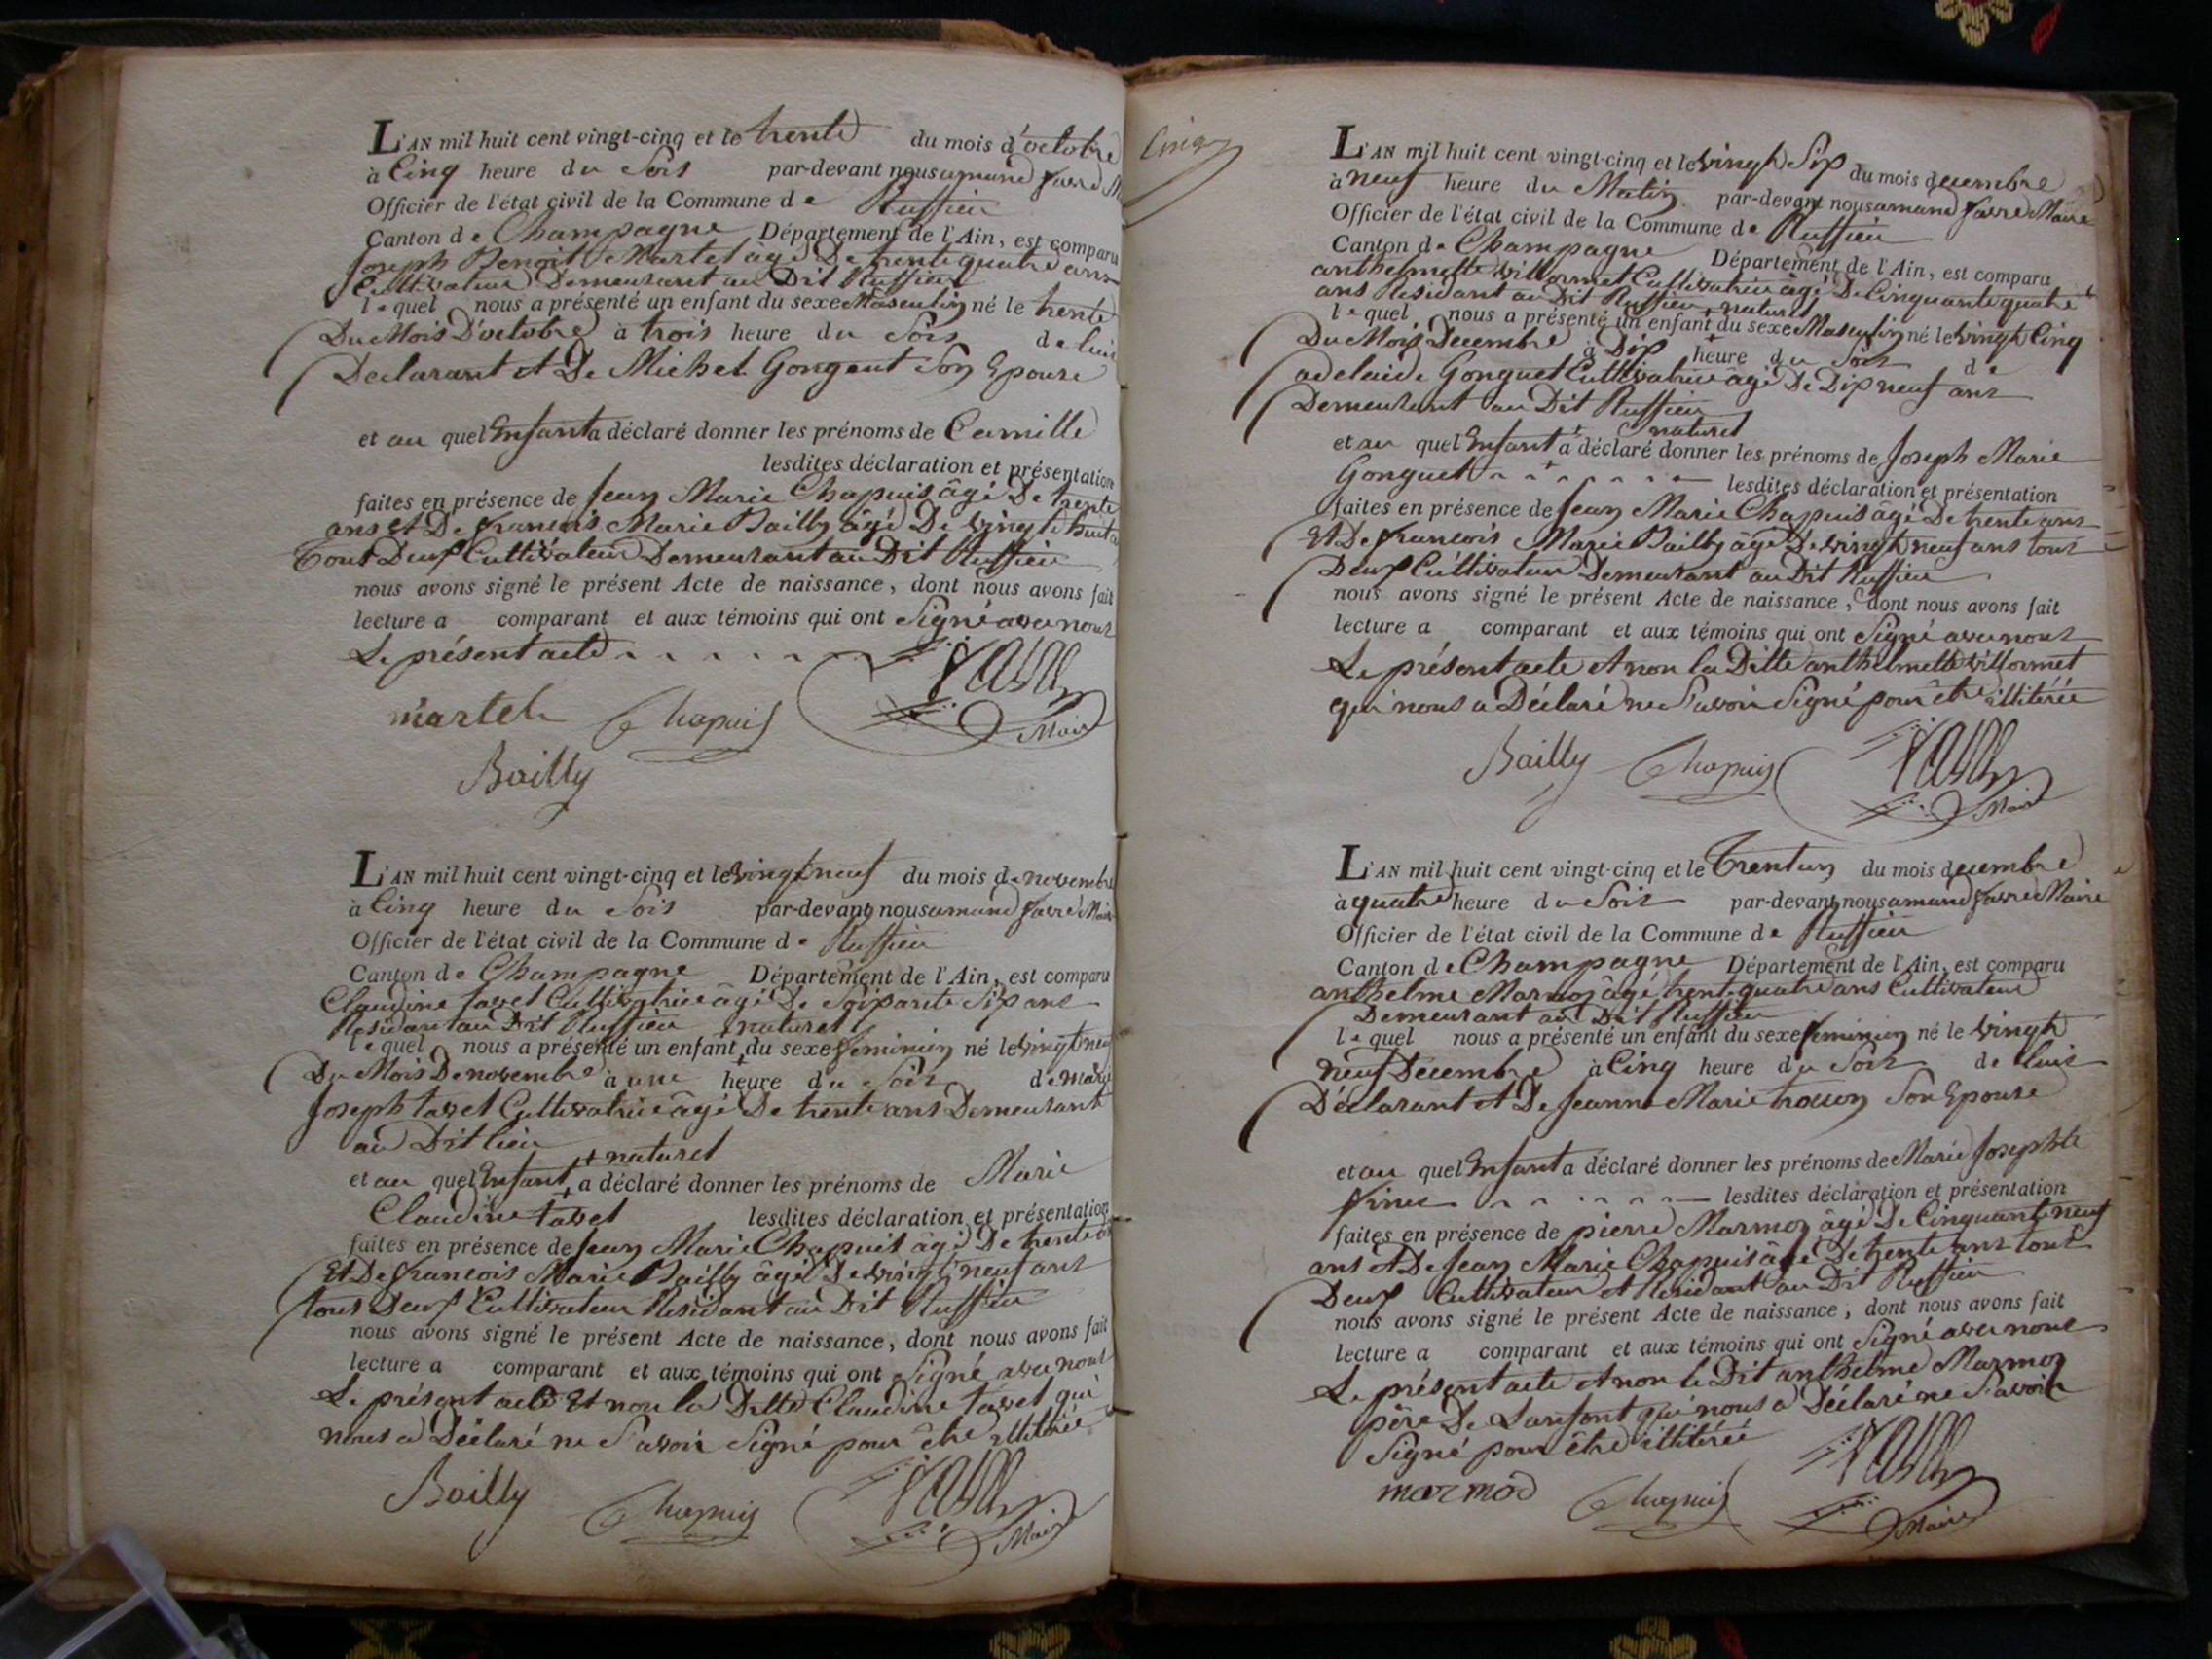 L'AN mil huit cent vingt-cinq et le trente du mois d'octobre
à Cinq heure du Soir par-devant nous amand favre
Officier de l'état civil de la Commune de Ruffieu
Canton de Champagne Département de l'Ain, est comparu
Joseph Benoit Martel âgé De trente quatre ans
Cultivateur Demeurant au Dit Ruffieu
lequel nous a présenté un enfant du sexe Masculin né le trente
Du Mois D'octobre à trois heure du Soir de lui
Déclarant et De Michel Gonguet Son Epouse
et au quel Enfant a déclaré donner les prénoms de Camille
lesdites déclaration et présentation
faites en présence de Jean Marie Chapuis âgé De trente
ans et De francois Marie Bailly âgé De vingt huit
Tout Deux Cultivateur Demeurant au Dit Ruffieu
nous avons signé le présent Acte de naissance, dont nous avons fait
lecture a comparant et aux témoins qui ont Signé avec nous
Le présent acte
martel Chapuis favre
Maire
Bailly
L'AN mil huit cent vingt-cinq et le vingt neuf du mois de novembre
à Cinq heure du Soir par-devant nous amand favre Maire
Officier de l'état civil de la Commune de Ruffieu
Canton de Champagne Département de l'Ain, est comparu
Claudine tavel Cultivatrice âgé De Soiparite Sip ans
Residant au Dit Ruffieu + naturel
lequel nous a présenté un enfant + du sexe feminin né le vingt neuf
Du Mois De novembre à une heure du Soir de marie
Joseph tavel Cultivatrice âgé De trente ans Demeurant
au Dit lieu
+ naturel
et au quel Enfant + a déclaré donner les prénoms de Marie
Claudine tavel lesdites déclaration et présentation
faites en présence de Jean Marie Chapuis âgé De trente
Et De francois Marie Bailly âgé De vingt neuf ans
tous Deux Cultivateur Residant au Dit Ruffieu
nous avons signé le présent Acte de naissance, dont nous avons fait
lecture a comparant et aux témoins qui ont Signé avec nous
Le présent acte Et non la Ditte Claudine tavel qui
nous a Déclaré ne Savoir Signé pour être illitérée
Bailly Chapuis favre
Maire
Cinq
L'AN mil huit cent vingt-cinq et le vingt Sip du mois decembre
à neuf heure du Matin par-devant nous amand favre Maire
Officier de l'état civil de la Commune de Ruffieu
Canton de Champagne Département de l'Ain, est comparu
anthelmette villormet Cultivatrice âgé De Cinquante quatre
ans Residant au Dit Ruffieu + naturel
lequel nous a présenté un enfant + du sexe Masculin né le vingt Cinq
Du Mois Decembre à Dip heure du Soir de
adelaide Gonguet Cultivatrice âgé De Dip neuf ans
Demeurant au Dit Ruffieu
+ naturel
et au quel Enfant + a déclaré donner les prénoms de Joseph Marie
Gonguet lesdites déclaration et présentation
faites en présence de Jean Marie Chapuis âgé De trente ans
Et De francois Marie Bailly âgé De vingt neuf ans tous
Deux Cultivateur Demeurant au Dit Ruffieu
nous avons signé le présent Acte de naissance, dont nous avons fait
lecture a comparant et aux témoins qui ont Signé avec nous
Le présent acte et non la Ditte anthelmette villormet
qui nous a Déclaré ne Savoir Signé pour être illitérée
Bailly Chapuis favre
Maire
L'AN mil huit cent vingt-cinq et le Trentun du mois decembre
à quatre heure du Soir par-devant nous amand favre Maire
Officier de l'état civil de la Commune de Ruffieu
Canton de Champagne Département de l'Ain, est comparu
anthelme Marmoz âgé trent-quatre ans Cultivateur
Demeurant au Dit Ruffieu
lequel nous a présenté un enfant du sexe feminin né le vingt
neuf Decembre à Cinq heure du Soir de luis
Déclarant et De Jeanne Marie Son Epouse
et au quel Enfant a déclaré donner les prénoms de Marie Josephte
lesdites déclaration et présentation
faites en présence de pierre Marmoz âgé De Cinquante neuf
ans et De Jean Marie Chapuis âgé De trente ans tous
Deux Cultivateur et Residant au Dit Ruffieu
nous avons signé le présent Acte de naissance, dont nous avons fait
lecture a comparant et aux témoins qui ont Signé avec nous
Le présent acte et non le Dit anthelme Marmoz
père De Lanfant qui nous a Déclaré ne Savoir
Signé pour être illitérée
marmod Chapuis favre
Maire